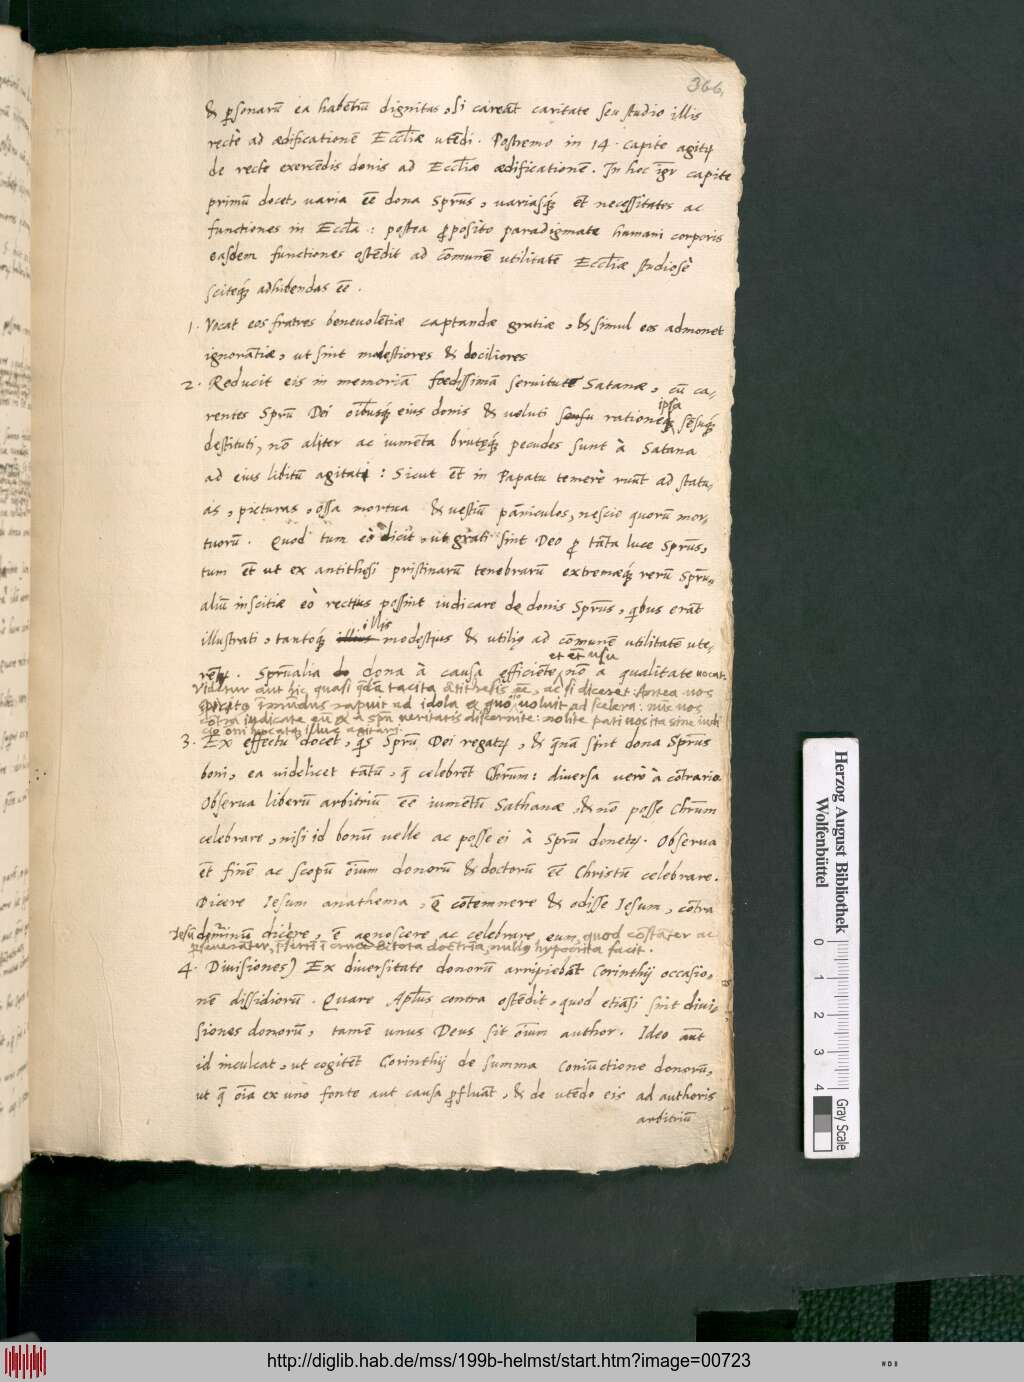 366
& psonarū ea habetiū dignitas, si careāt caritate seu studio illis
rectè ad ædificationē Eccl̄iæ utēdi. Postremo in 14. capite agitur
de recte exercēdis donis ad Eccl̄iæ ædificationē. In hoc igr̄ capite
primū docet, varia eē dona Spr̄us, variasq; et necessitates ac
functiones in Eccl̄a: postea pposito paradigmate humani corporis
easdem functiones ostēdit ad cōmunē utilitatē Eccl̄iæ studiosè
sciteq; adhibendas eē.
1. Vocat eos fratres beneuolētiæ captandæ gratiæ, & simul eos admonet
ignorātiæ, ut sint modestiores & dociliores
2. Reducit eis in memoriā fœdissimā seruitutē Satanæ, cū ca-
ipsa
rentes Spr̄u Dei oībusq; eius donis & ueluti sensu rationeq; sēsuq;
destituti, nō aliter ac iumēta brutęq; pecudes sunt à Satana
ad eius libitū agitati: Sicut et in Papatu temerè ruūt ad statu-
as, picturas, ossa mortua & uestiū pāniculos, nescio quorū mor-
tuorū. Quod tum eò dicit, ut grati sint Deo p tāta luce Spr̄us,
tum et ut ex antithesi pristinarū tenebrarū extremæq; rerū Spr̄u-
aliū inscitiæ eò rectius possint iudicare de donis Spr̄us, qbus erāt
illis
illustrati, tantoq; illius modestius & utiliꝰ ad cōmunē utilitatē ute-
et et usu
rētur. Spr̄ualia do dona à causa efficiēte nō a qualitate uocat.
Videtur aūt hic quasi qdā tacita ātithesis eē, ac si diceret. Antea uos
spiritꝰ īmūdus rapuit ad idola et quò uoluit ad scelera: nūc uos
cōtra iudicate
3. Ex effectu docet, qs Spr̄u Dei regatur, & qnā sint dona Spr̄us
boni, ea uidelicet tātū, q celebrēt Chr̄um: diuersa uerò à cōtrario.
Obserua liberū arbitriū eē iumētū Sathanæ, & nō posse Chr̄um
celebrare, nisi id bonū uelle ac posse ei à Spr̄u donetur. Obserua
et finē ac scopū oīum donorū & doctorū eē Christū celebrare.
Dicere Iesum anathema, ē cōtemnere & odisse Iesum, cōtra
Iesū dominū dicere, ē agnoscere ac celebrare eum, quod cōstāter ac
doctrīa, nullus hypocrita facit.
4. Diuisiones) Ex diuersitate donorū arripiebāt Corinthij occasio-
nē dissidiorū. Quare Apl̄us contra ostēdit, quod etiāsi sint diui-
siones donorū, tamē unus Deus sit oīum author. Ideo aūt
id inculcat, ut cogitēt Corinthij de summa coniūctione donorū,
ut q oīa ex uno fonte aut causa pfluāt, & de utēdo eis ad authoris
arbitriū
Herzog August Bibliothek
Wolfenbüttel
0 1 2 3 4 Gray Scale
http://diglib.hab.de/mss/199b-helmst/start.htm?image=00723
WDB